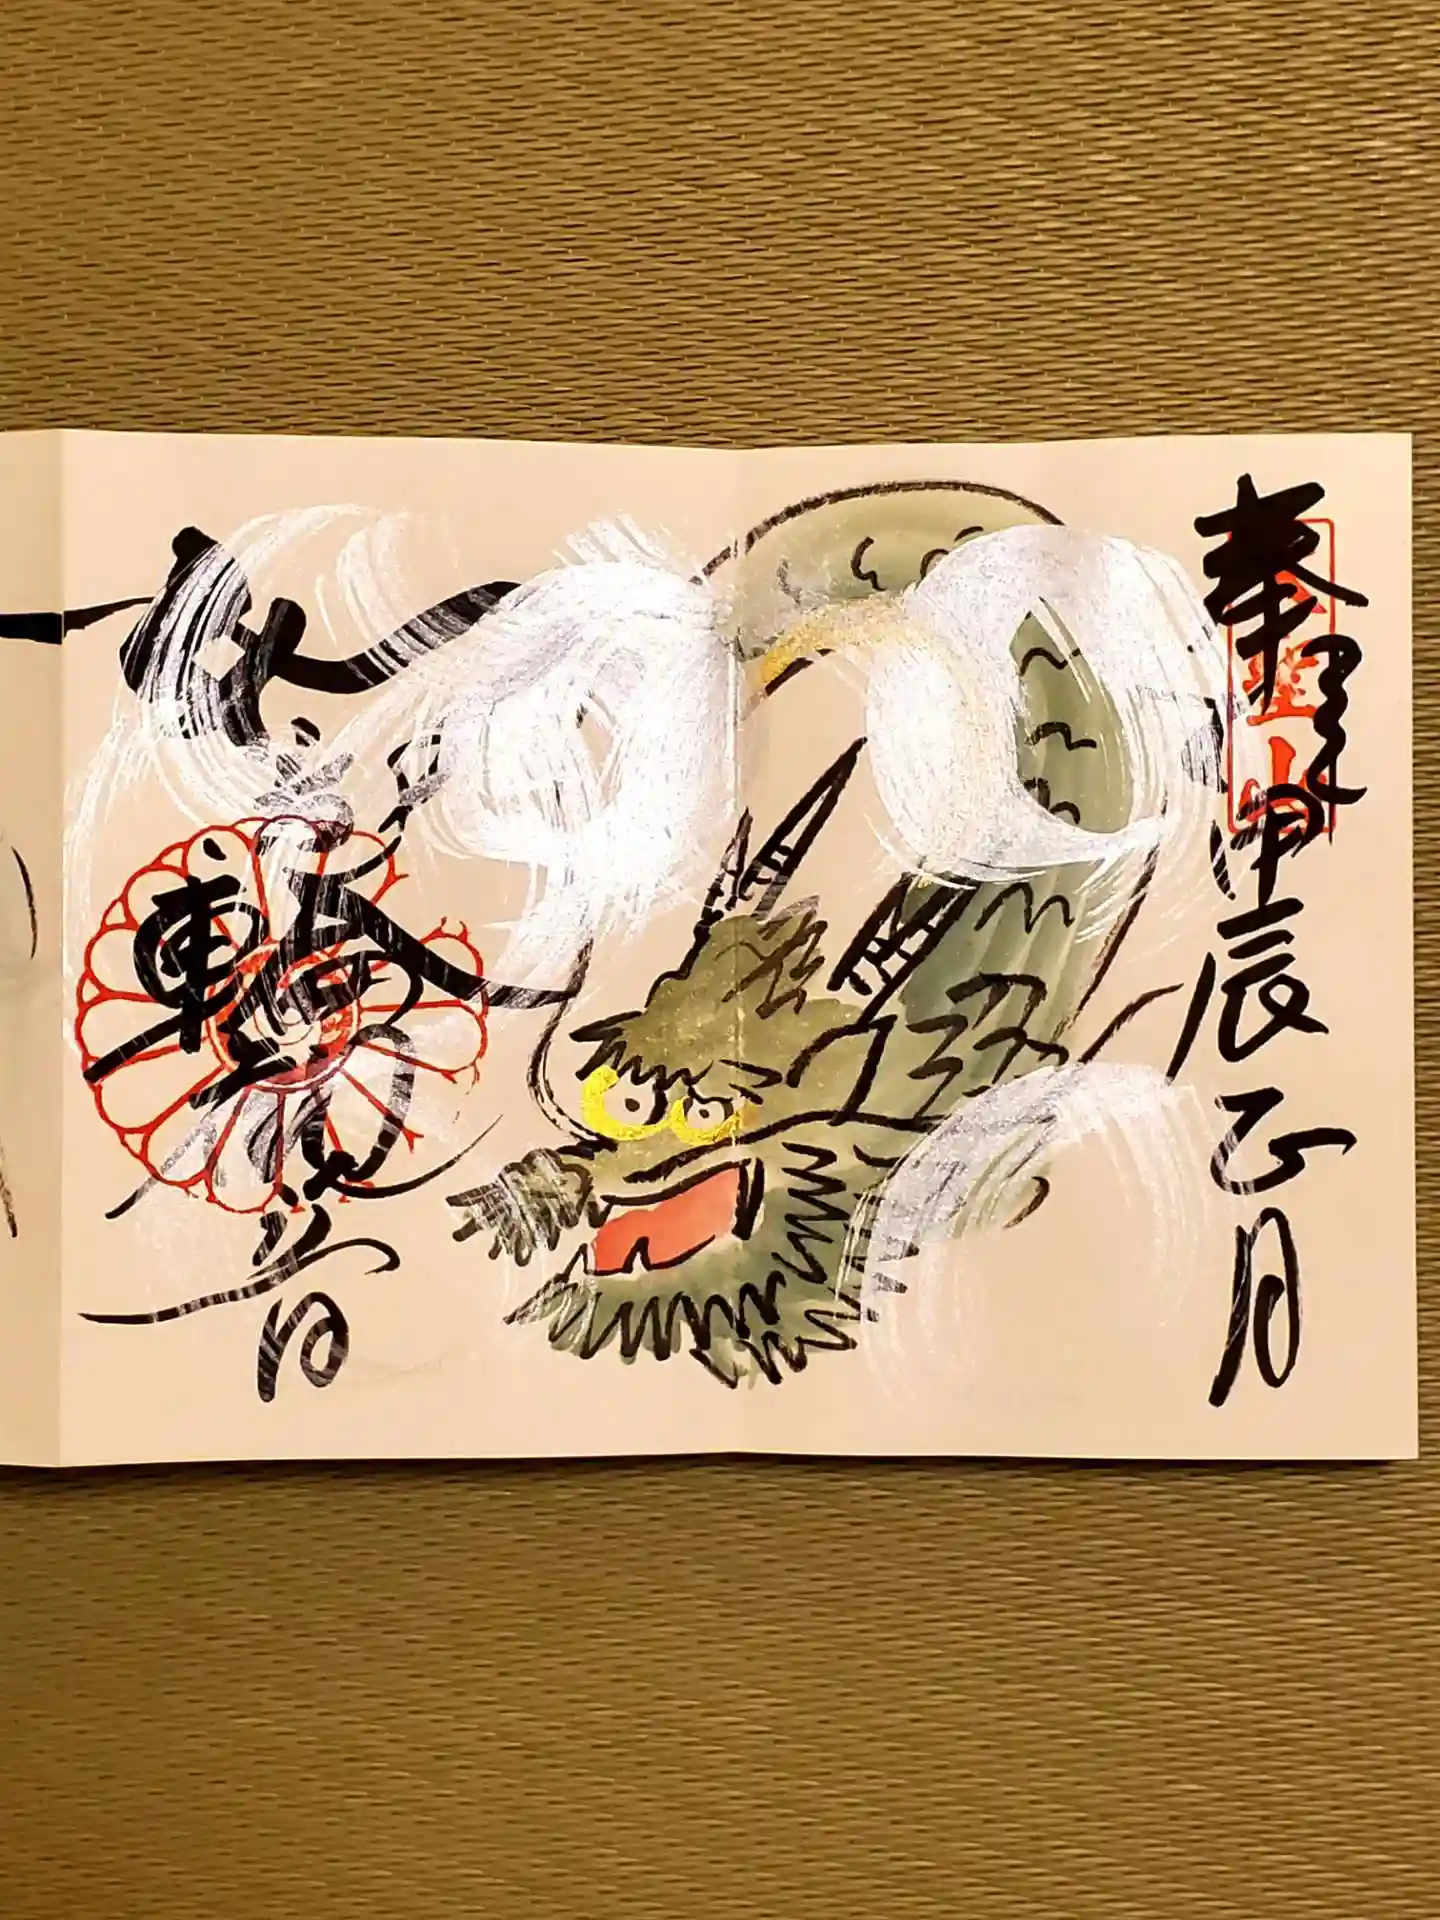 奉拝 甲辰正月
如意輪観音